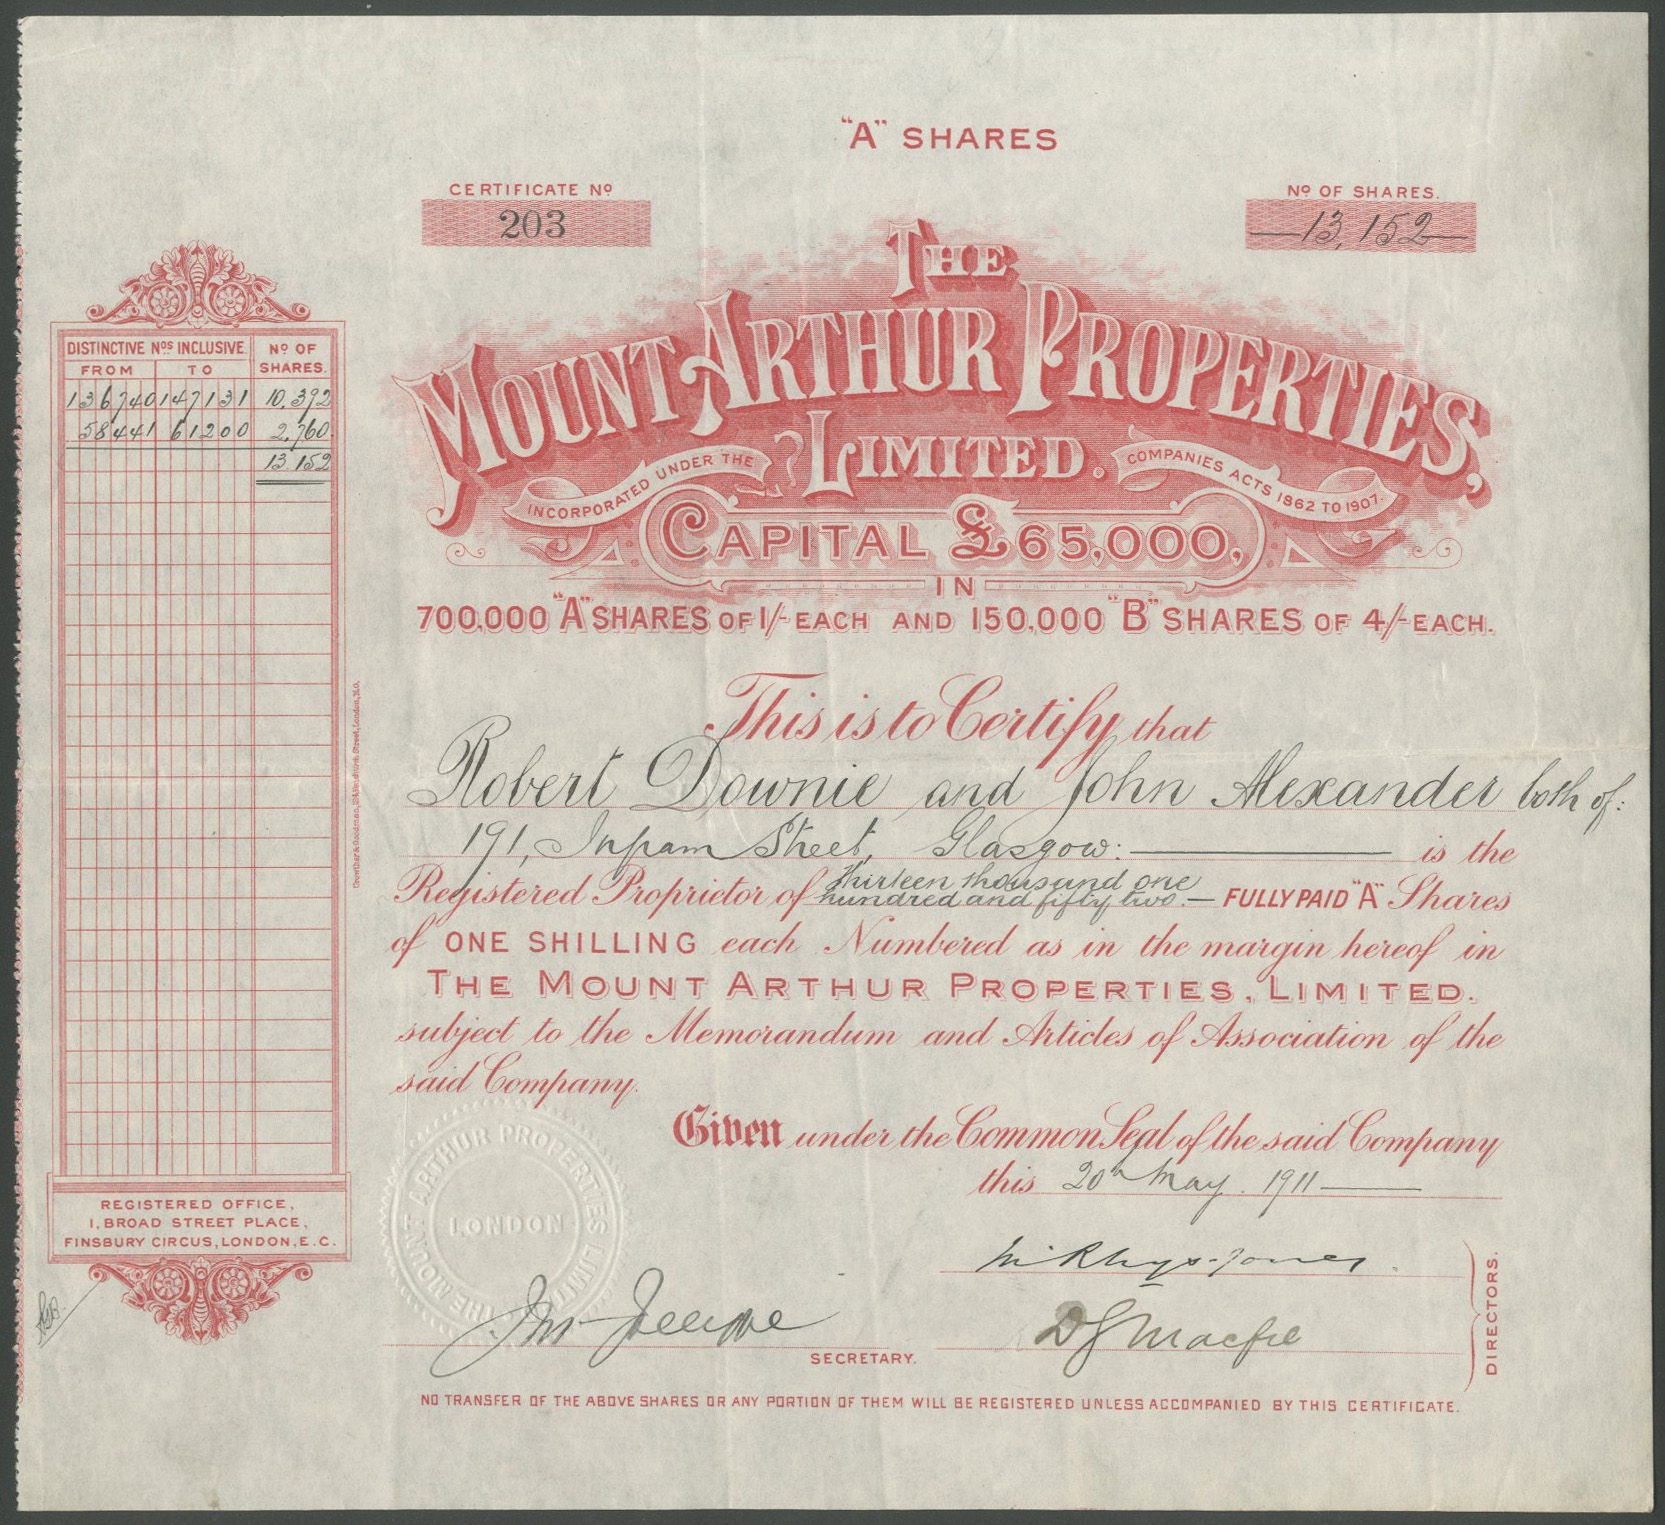 "A" SHARES
CERTIFICATE No
203
No OF SHARES.
13,152
THE
MOUNT ARTHUR PROPERTIES,
LIMITED.
INCORPORATED UNDER THE
COMPANIES ACTS 1862 TO 1907.
CAPITAL £65,000,
IN
700,000 "A" SHARES OF 1/- EACH AND 150,000 "B" SHARES OF 4/- EACH.
DISTINCTIVE Nos INCLUSIVE.
No OF SHARES.
FROM TO
136740 147131 10,392
58441 61200 2,760
13.152
This is to Certify that
Robert Downie and John Alexander both of:
191, Ingram Street, Glasgow: is the
Registered Proprietor of thirteen thousand one
hundred and fifty two. — FULLY PAID "A" Shares
of ONE SHILLING each Numbered as in the margin hereof in
THE MOUNT ARTHUR PROPERTIES, LIMITED.
subject to the Memorandum and Articles of Association of the
said Company.
Given under the Common Seal of the said Company
this 20th May. 1911
THE MOUNT ARTHUR PROPERTIES LIMITED
LONDON
REGISTERED OFFICE,
1, BROAD STREET PLACE,
FINSBURY CIRCUS, LONDON, E.C.
Rhys-Jones
D J Macfie
DIRECTORS.
SECRETARY.
NO TRANSFER OF THE ABOVE SHARES OR ANY PORTION OF THEM WILL BE REGISTERED UNLESS ACCOMPANIED BY THIS CERTIFICATE.